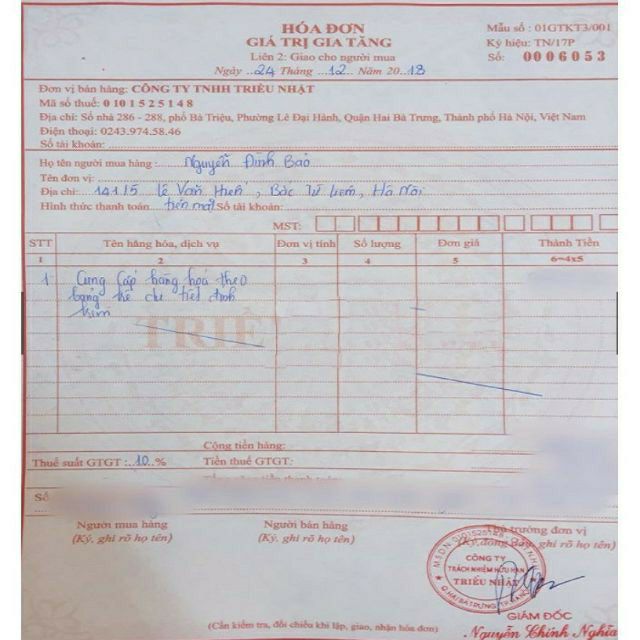 HÓA ĐƠN
GIÁ TRỊ GIA TĂNG
Liên 2: Giao cho người mua
Ngày ..24 Tháng ..12.. Năm 20.18
Mẫu số : 01GTKT3/001
Ký hiệu: TN/17P
Số: 0006053
Đơn vị bán hàng: CÔNG TY TNHH TRIỀU NHẬT
Mã số thuế: 0101525148
Địa chỉ: Số nhà 286 - 288, phố Bà Triệu, Phường Lê Đại Hành, Quận Hai Bà Trưng, Thành phố Hà Nội, Việt Nam
Điện thoại: 0243.974.58.46
Số tài khoản:
Họ tên người mua hàng : Nguyễn Đình Bảo
Tên đơn vị:
Địa chỉ: Lê Văn Hiến, Bắc Từ Liêm, Hà Nội
Hình thức thanh toán: tiền mặt Số tài khoản:
MST:
STT Tên hàng hóa, dịch vụ Đơn vị tính Số lượng Đơn giá Thành Tiền
1 2 3 4 5 6=4x5
1 Cung cấp hàng hoá theo
bảng kê chi tiết đính
kèm
Cộng tiền hàng:
Thuế suất GTGT :.10..% Tiền thuế GTGT:
Số
Người mua hàng Người bán hàng Thủ trưởng đơn vị
(Ký, ghi rõ họ tên) (Ký, ghi rõ họ tên)
M.S.D.N: 0101525148
CÔNG TY
TRÁCH NHIỆM HỮU HẠN
TRIỀU NHẬT
Q.HAI BÀ TRƯNG
GIÁM ĐỐC
Nguyễn Chính Nghĩa
(Cần kiểm tra, đối chiếu khi lập, giao, nhận hóa đơn)